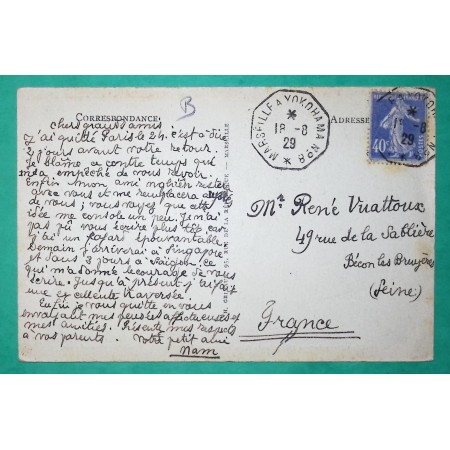 B
CORRESPONDANCE
ADRESSE
MARSEILLE A YOKOHAMA N°8
18-8
29
40c
chers grands amis
J'ai quitté Paris le 24. c'est à dire
2 jours avant votre retour.
Je blâme ce contre temps qui
m'a empêché de vous revoir.
Enfin mon ami reste
avec vous et me remplacera
de vous; vous voyez que cette
idée me console un peu. Je n'ai
pas pu vous écrire plus tôt car
j'ai un cafard épouvantable
Demain j'arriverai à Singapore
et dans 3 jours à Saïgon, ce
qui m'a donné le courage de vous
écrire. Jusqu'à présent j'ai fait
une excellente traversée.
Enfin je vous quitte en vous
envoyant mes pensées affectueuses et
mes amitiés. Présente mes respects
à vos parents. Votre petit ami
Nam
Mr René Vuattoux
49 rue de la Sablière
Bécon les Bruyères
(Seine)
France
MARSEILLE